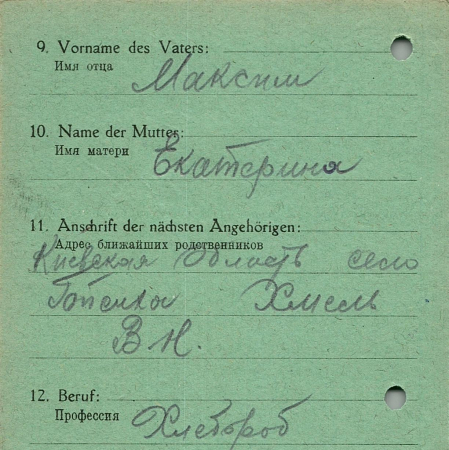 9. Vorname des Vaters:
Имя отца
Максим
10. Name der Mutter:
Имя матери
Екатерина
11. Anschrift der nächsten Angehörigen:
Адрес ближайших родственников
Киевская Область село
Хмель
В Н.
12. Beruf:
Профессия
Хлебороб